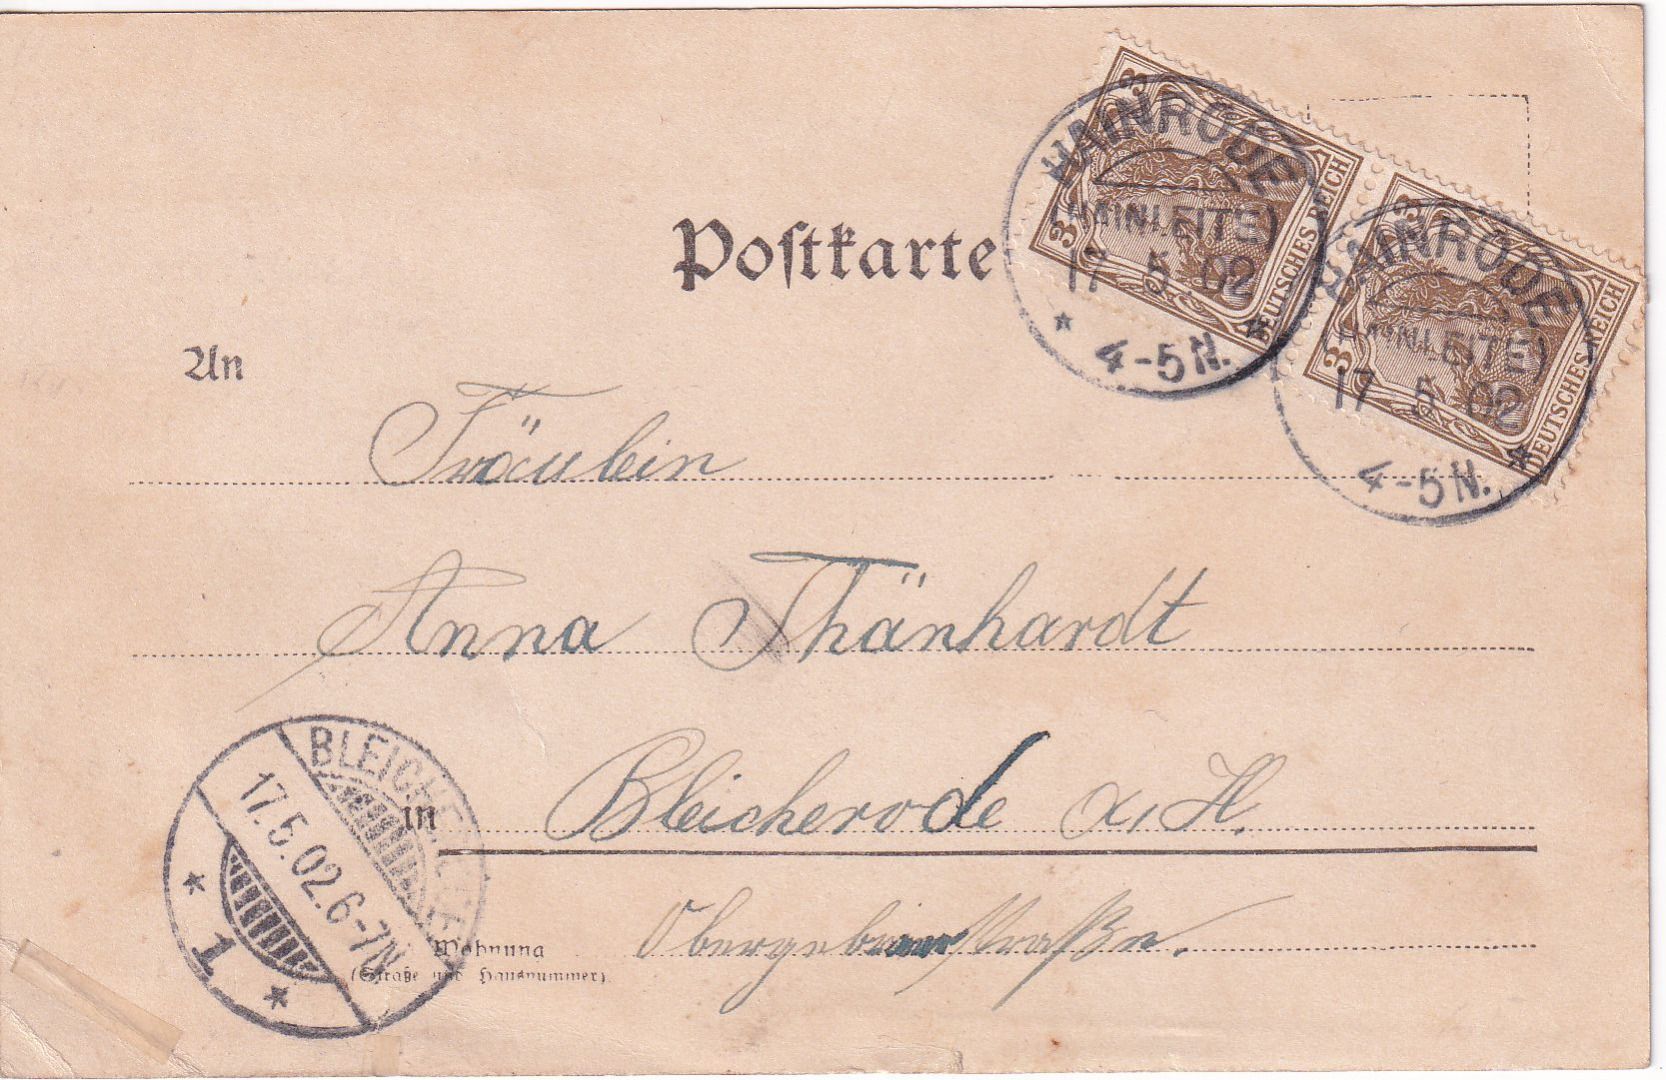 Postkarte
3 3 DEUTSCHES REICH
HAINRODE
(HAINLEITE)
17 5.02
* 4-5 N. *
3 3 DEUTSCHES REICH
HAINRODE
(HAINLEITE)
17 5.02
4-5 N. *
An
Fräulein
Anna Thänhardt
in Bleicherode a. H.
BLEICHERODE
17.5.02.6-7N
* 1 *
Wohnung
(Straße und Hausnummer)